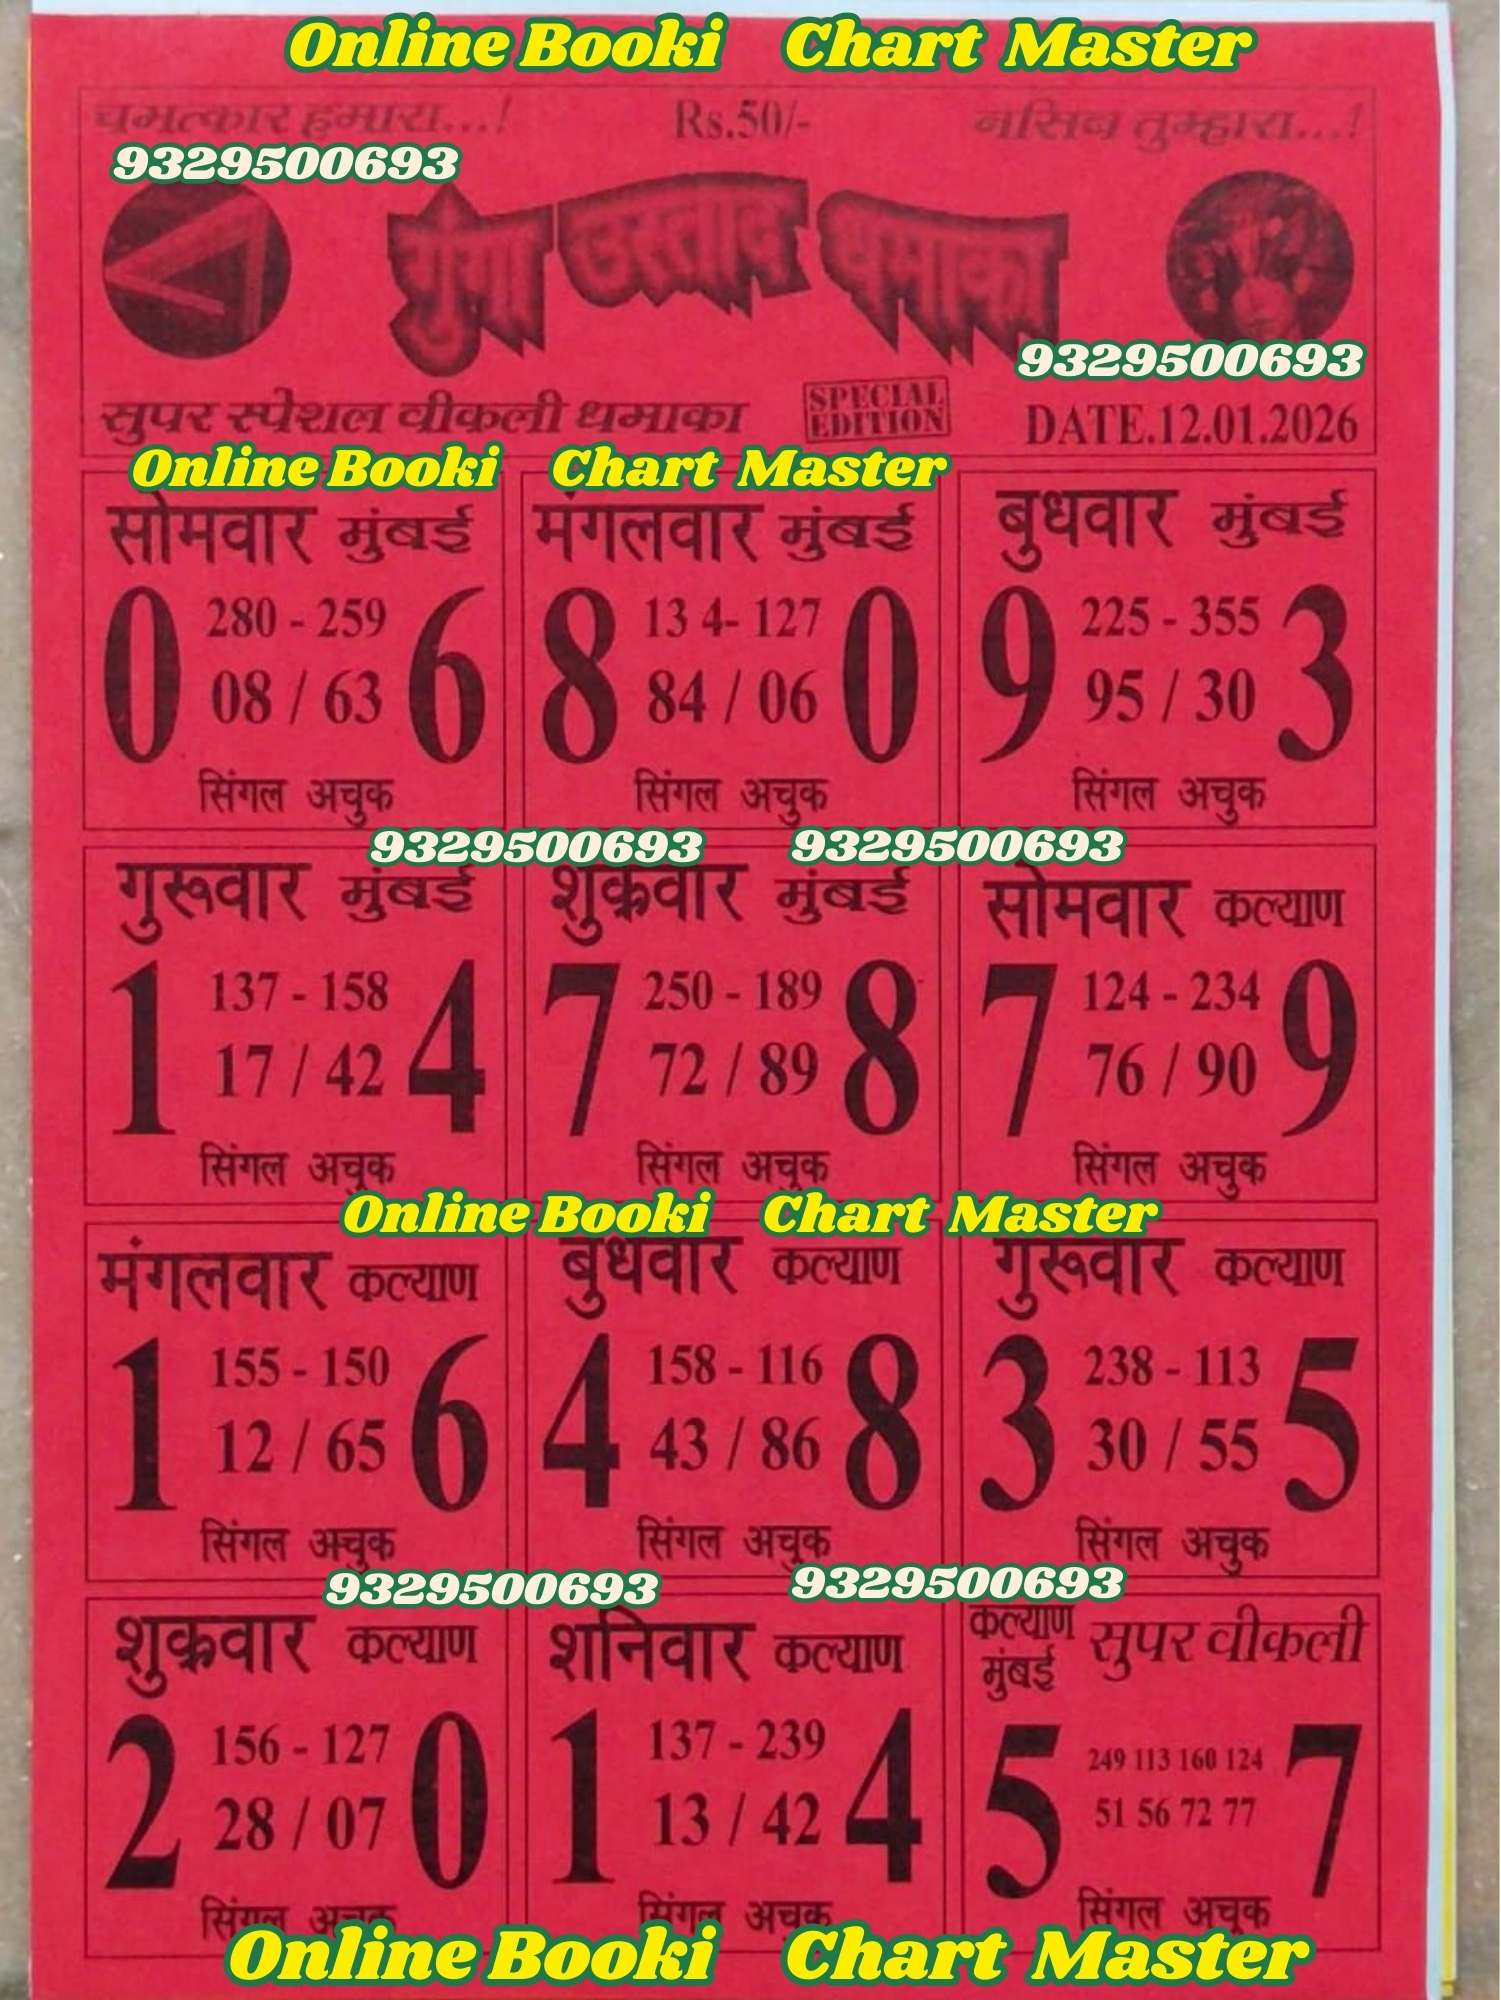 Online Booki Chart Master
चमत्कार हमारा...! Rs.50/- नसिब तुम्हारा...!
9329500693
गुंगा उस्ताद धमाका
9329500693
सुपर स्पेशल वीकली धमाका SPECIAL EDITION DATE.12.01.2026
Online Booki Chart Master
सोमवार मुंबई
0 280 - 259 6
08 / 63
सिंगल अचुक
मंगलवार मुंबई
8 13 4- 127 0
84 / 06
सिंगल अचुक
बुधवार मुंबई
9 225 - 355 3
95 / 30
सिंगल अचुक
9329500693 9329500693
गुरूवार मुंबई
1 137 - 158 4
17 / 42
सिंगल अचुक
शुक्रवार मुंबई
7 250 - 189 8
72 / 89
सिंगल अचुक
सोमवार कल्याण
7 124 - 234 9
76 / 90
सिंगल अचुक
Online Booki Chart Master
मंगलवार कल्याण
1 155 - 150 6
12 / 65
सिंगल अचुक
बुधवार कल्याण
4 158 - 116 8
43 / 86
सिंगल अचुक
गुरूवार कल्याण
3 238 - 113 5
30 / 55
सिंगल अचुक
9329500693 9329500693
शुक्रवार कल्याण
2 156 - 127 0
28 / 07
सिंगल अचुक
शनिवार कल्याण
1 137 - 239 4
13 / 42
सिंगल अचुक
कल्याण मुंबई सुपर वीकली
5 249 113 160 124 7
51 56 72 77
सिंगल अचुक
Online Booki Chart Master